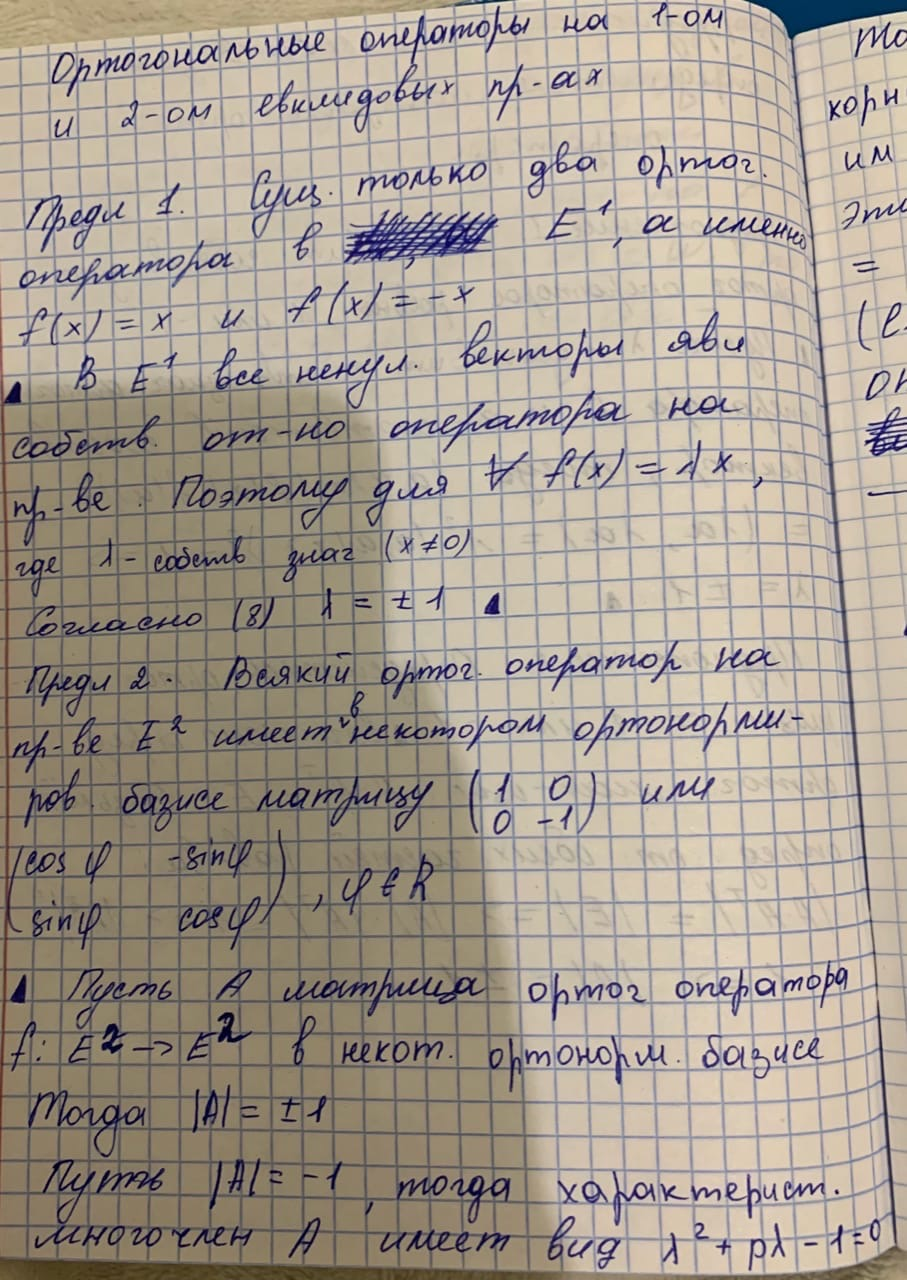 Ортогональные операторы на 1-ом
и 2-ом евклидовых пр-ах
Предл 1. Сущ. только два ортог.
оператора в E¹, а именно
f(x) = x и f(x) = -x
В E¹ все ненул. векторы явл
собств. от-но оператора на
пр-ве. Поэтому для ∀ f(x) = λx,
где λ - собств знач (x≠0)
Согласно (8) λ = ±1
Предл 2. Всякий ортог. оператор на
пр-ве E² имеет в некотором ортонорми-
ров. базисе матрицу (1 0
0 -1) или
(cos φ -sin φ
sin φ cos φ), φ ∈ R
Пусть A матрица ортог оператора
f: E² → E² в некот. ортонорм. базисе
Тогда |A| = ±1
Путь |A| = -1, тогда характерист.
многочлен A имеет вид λ² + pλ - 1 = 0
корн
им
эти
=